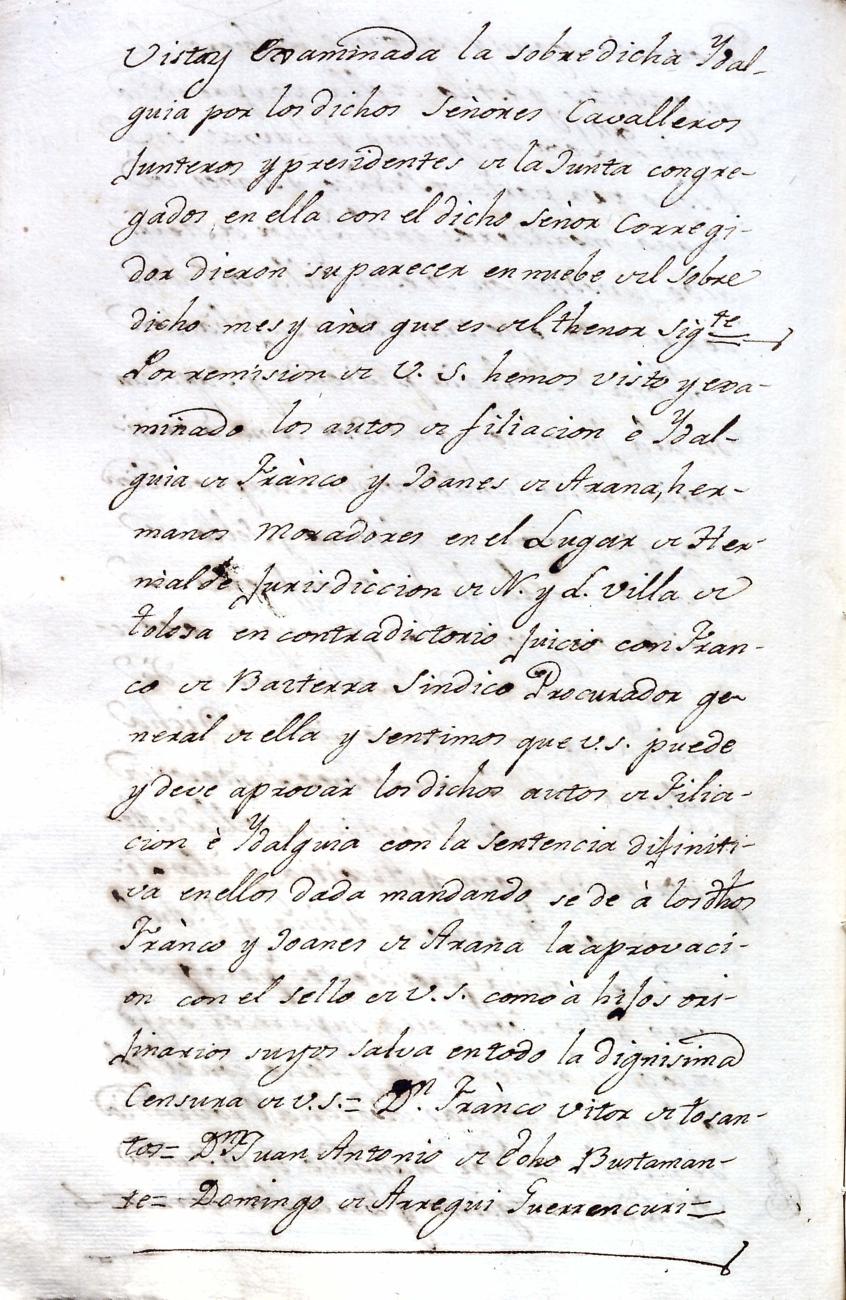 Vista y Examinada la sobredicha Ydal-
guia por los dichos Señores Cavalleros
Junteros y presidentes de la Junta congre-
gados en ella con el dicho Señor Corregi-
dor dieron su parecer en nuebe del sobre
dicho mes y año que es del thenor sigte
Por remision de V. S. hemos visto y exa-
minado los autos de filiacion è Ydal-
guia de Frànco y Joanes de Arana, her-
manos Moradores en el Lugar de Her-
nialde Jurisdiccion de N. y L. villa de
tolosa en contradictorio Juicio con Fran-
co de Basterra Sindico Procurador ge-
neral de ella y sentimos que v.s. puede
y deve aprovar los dichos autos de Filia-
cion è Ydalguia con la Sentencia difiniti-
va en ellos dada mandando se de à los dhos
Frànco y Joanes de Arana la aprovaci-
on con el sello de v.s. como à hijos ori-
jinarios suyos salva en todo la dignisima
Censura de v.s.= Dn. Frànco vitor de to san-
tos= Dn Juan Antonio de dcho Bustaman-
te= Domingo de Arregui Guerrencuri=